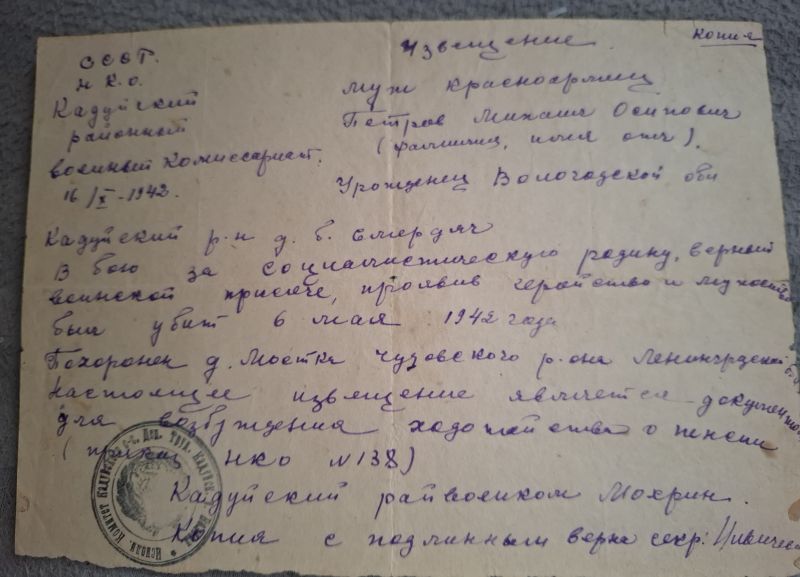 Извещение
Копия
СССР.
Н.К.О.
Кадуйский
районный
военный комиссариат.
16/X-1942.
муж красноармеец
Петров Михаил Осипович
(фамилия, имя отч).
Уроженец Вологодской обл
Кадуйский р-н д. б. Смердяч
В бою за социалистическую родину, верный
воинской присяге, проявив геройство и мужество
был убит 6 мая 1942 года
Похоронен д. Мостки Чудовского р-она Ленинградской
Настоящее извещение является документом
для возбуждения ходотайства о пенсии
(приказ НКО N 138)
Кадуйский райвоенком Мохрин.
Копия с подлинным верна секр: